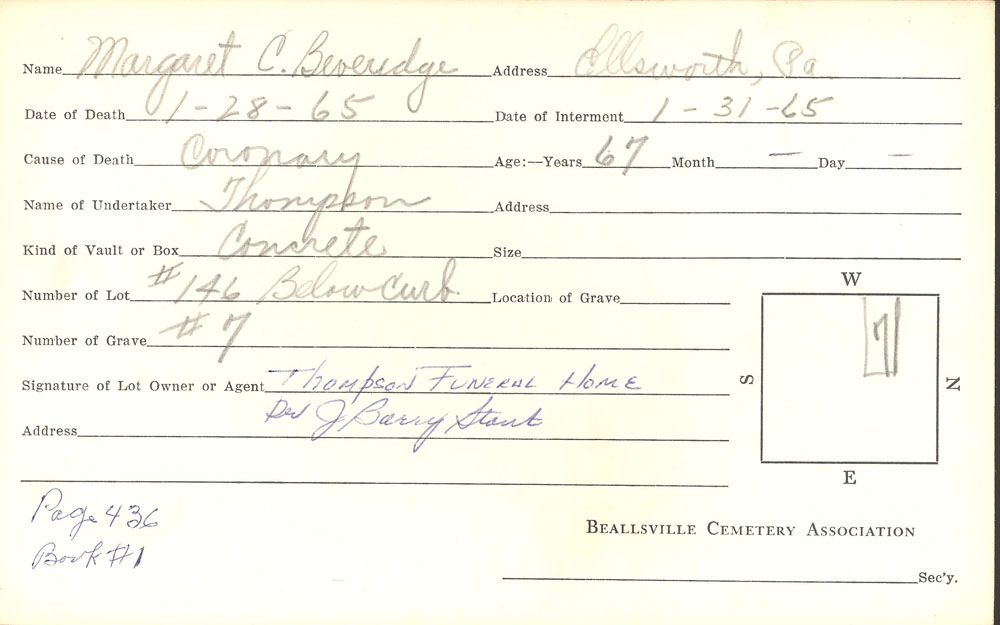 Name Margaret C. Beveredge Address Ellsworth, Pa
Date of Death 1-28-65 Date of Interment 1-31-65
Cause of Death Coronary Age:—Years 67 Month — Day —
Name of Undertaker Thompson Address
Kind of Vault or Box Concrete Size
Number of Lot #146 Below Curb Location of Grave
Number of Grave #7
Signature of Lot Owner or Agent Thompson Funeral Home
Per J Barry Stout
Address
W
S
7
N
E
Page 436
Book #1
BEALLSVILLE CEMETERY ASSOCIATION
Sec'y.